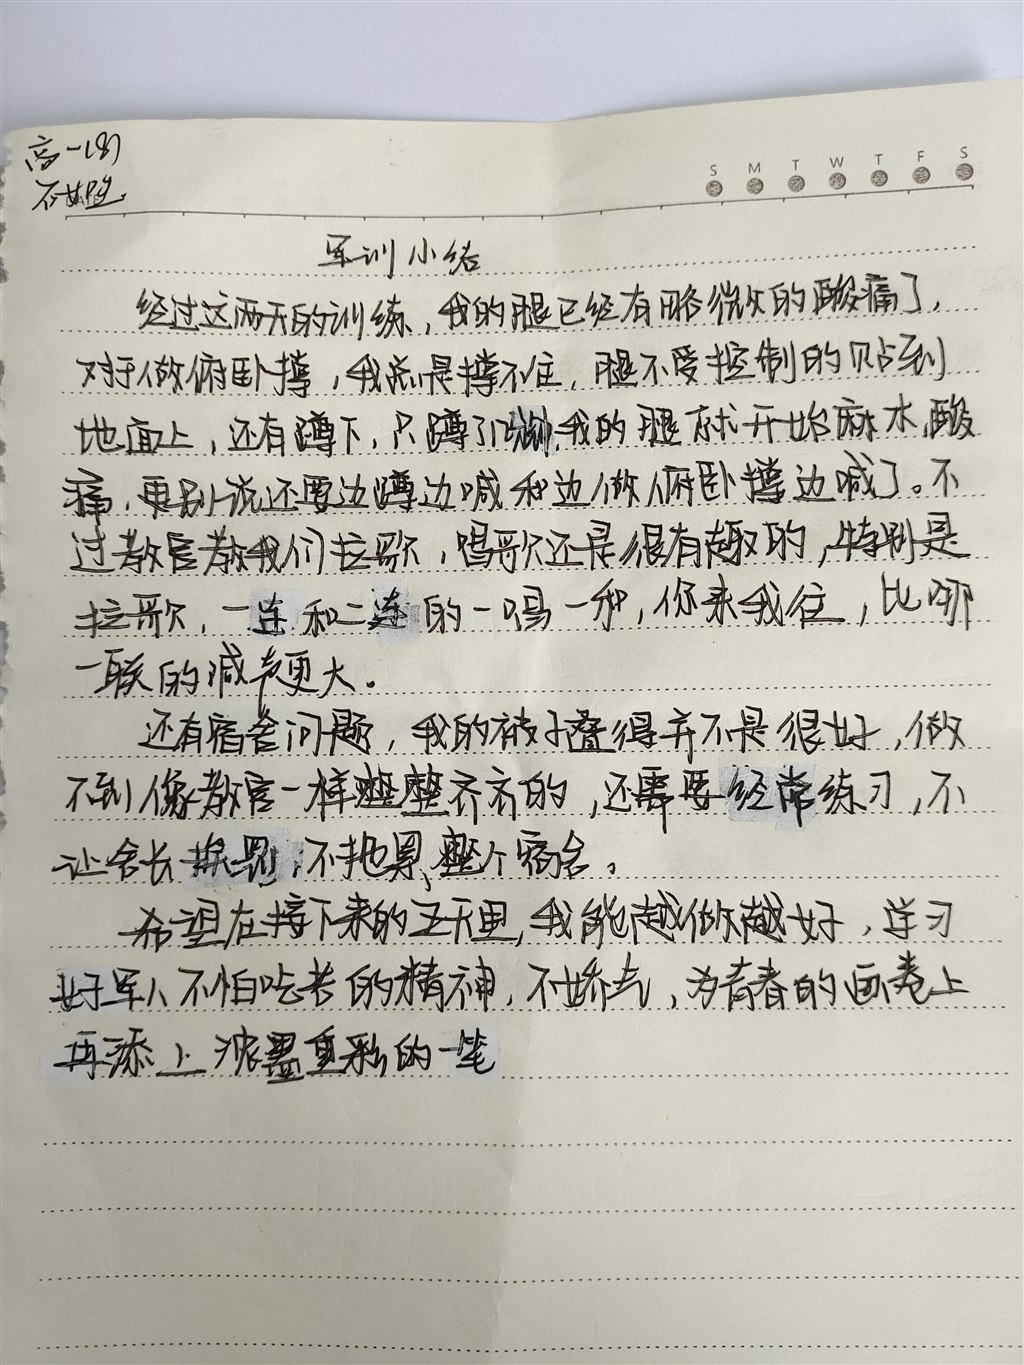 高一(8)
S M T W T F S
军训小结
经过这两天的训练，我的腿已经有略微的酸痛了，
对于做俯卧撑，我总是撑不住，腿不受控制的贴到
地面上，还有蹲下，只蹲了我的腿就开始麻木，酸
痛，更别说还要边蹲边喊和边做俯卧撑边喊了。不
过教官教我们拉歌，唱歌还是很有趣的，特别是
拉歌，一连和二连的一唱一和，你来我往，比哪
一联的喊声更大。
还有宿舍问题，我的被子叠得并不是很好，做
不到像教官一样整整齐齐的，还需要经常练习，不
让舍长，不拖累整个宿舍。
希望在接下来的五天里，我能越做越好，学习
好军人不怕吃苦的精神，不娇气，为青春的画卷上
再添上浓墨重彩的一笔